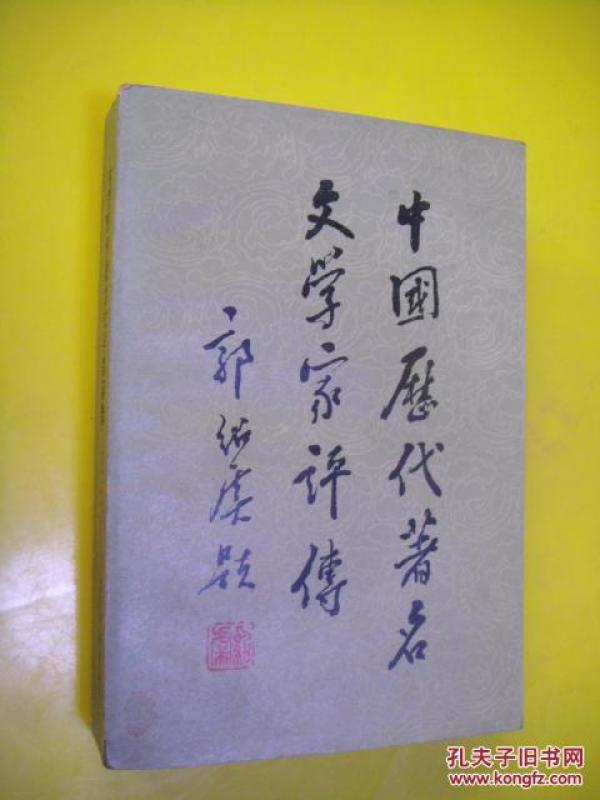 中國歷代著名
文学家評傳
郭紹虞題
孔夫子旧书网
www.kongfz.com